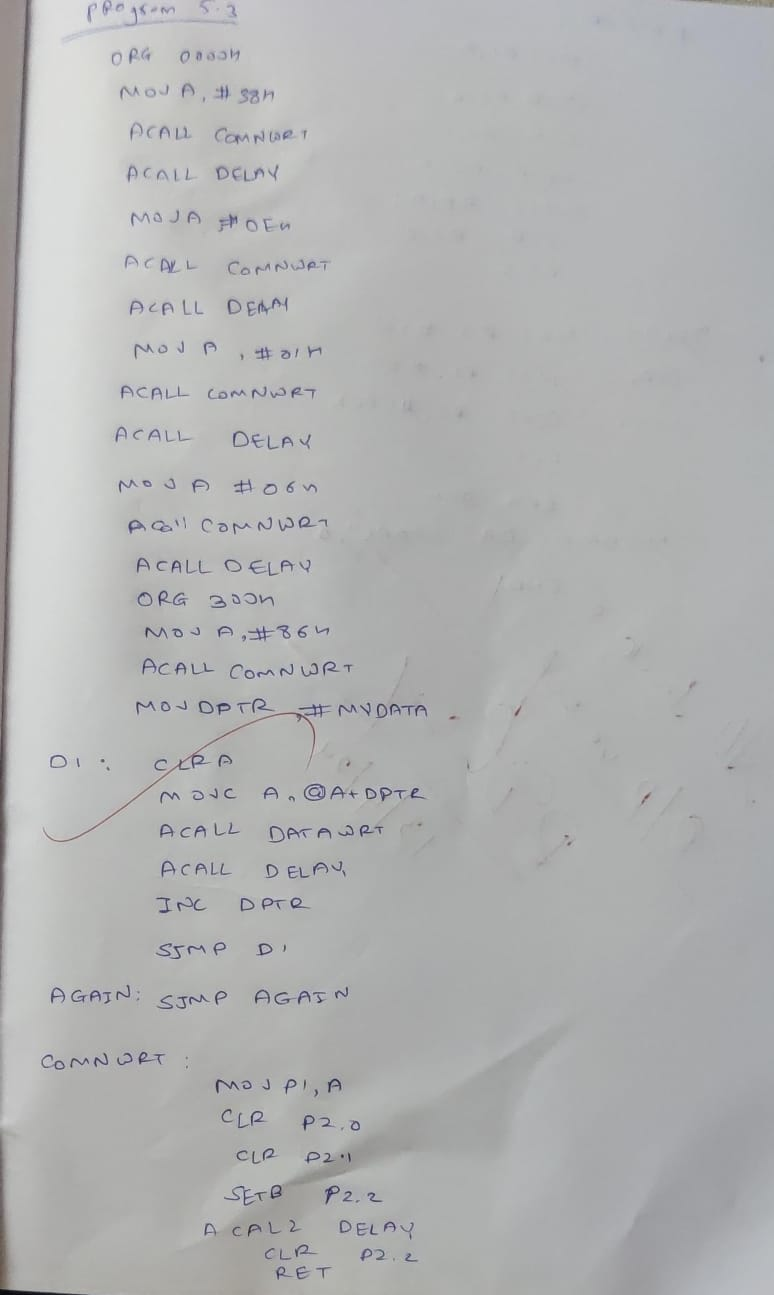 Program 5.3
ORG 0000H
MOV A, #38H
ACALL COMNWRT
ACALL DELAY
MOV A #0EH
ACALL COMNWRT
ACALL DELAY
MOV A , #01H
ACALL COMNWRT
ACALL DELAY
MOV A #06H
ACall COMNWRT
ACALL DELAY
ORG 300H
MOV A, #86H
ACALL COMNWRT
MOV DPTR, #MYDATA
D1 : CLR A
MOVC A, @A+DPTR
ACALL DATAWRT
ACALL DELAY
INC DPTR
SJMP D1
AGAIN: SJMP AGAIN
COMNWRT :
MOV P1, A
CLR P2.0
CLR P2.1
SETB P2.2
ACALL DELAY
CLR P2.2
RET